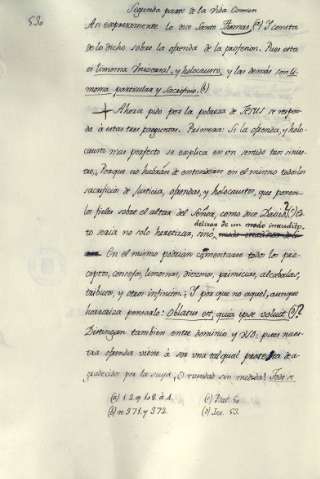 Segunda parte de la Vida Comun
530
An expresamente lo dice Santo Thomas (a) I consta
de lo dicho sobre la ofrenda de la profesion. Pues esta
es limosna Universal, y holocausto, y las demás son li
mosna particular y Sacrificio. (b)
Ahora pido por la pobreza de Jesus se respon
da á estas tres preguntas. Primera: Si la ofrenda, y holo
causto mas perfecto se explica en un sentido tan sinies
tro, Porque no habrán de entenderse en el mismo todos los
sacrificios de Justicia, ofrendas, y holocaustos, que ponen
los fieles sobre el altar del Señor, como dice David? (c) Es
delirar de un modo inaudito.
to sería no solo heretizar, sinó,
En el mismo podrian comentarse todos los pre
ceptos, consejos, limosnas, diezmos, primicias, alcabalas,
tributos, y otros infinitos; I por que no aquel, aunque
horroriza pensarlo: Oblatus est, quia ipse voluit (d)?
Distingan tambien entre dominio y uso; pues nues
tra ofrenda viene á ser una tal qual protesta de a
gradecidos por la suya, O vanidad sin medida! Todo se
(a) 1. 2. q. 108. á. 4.
(b) n 371. y 372.
(c) Psal. 50
(d) Isa. 53.